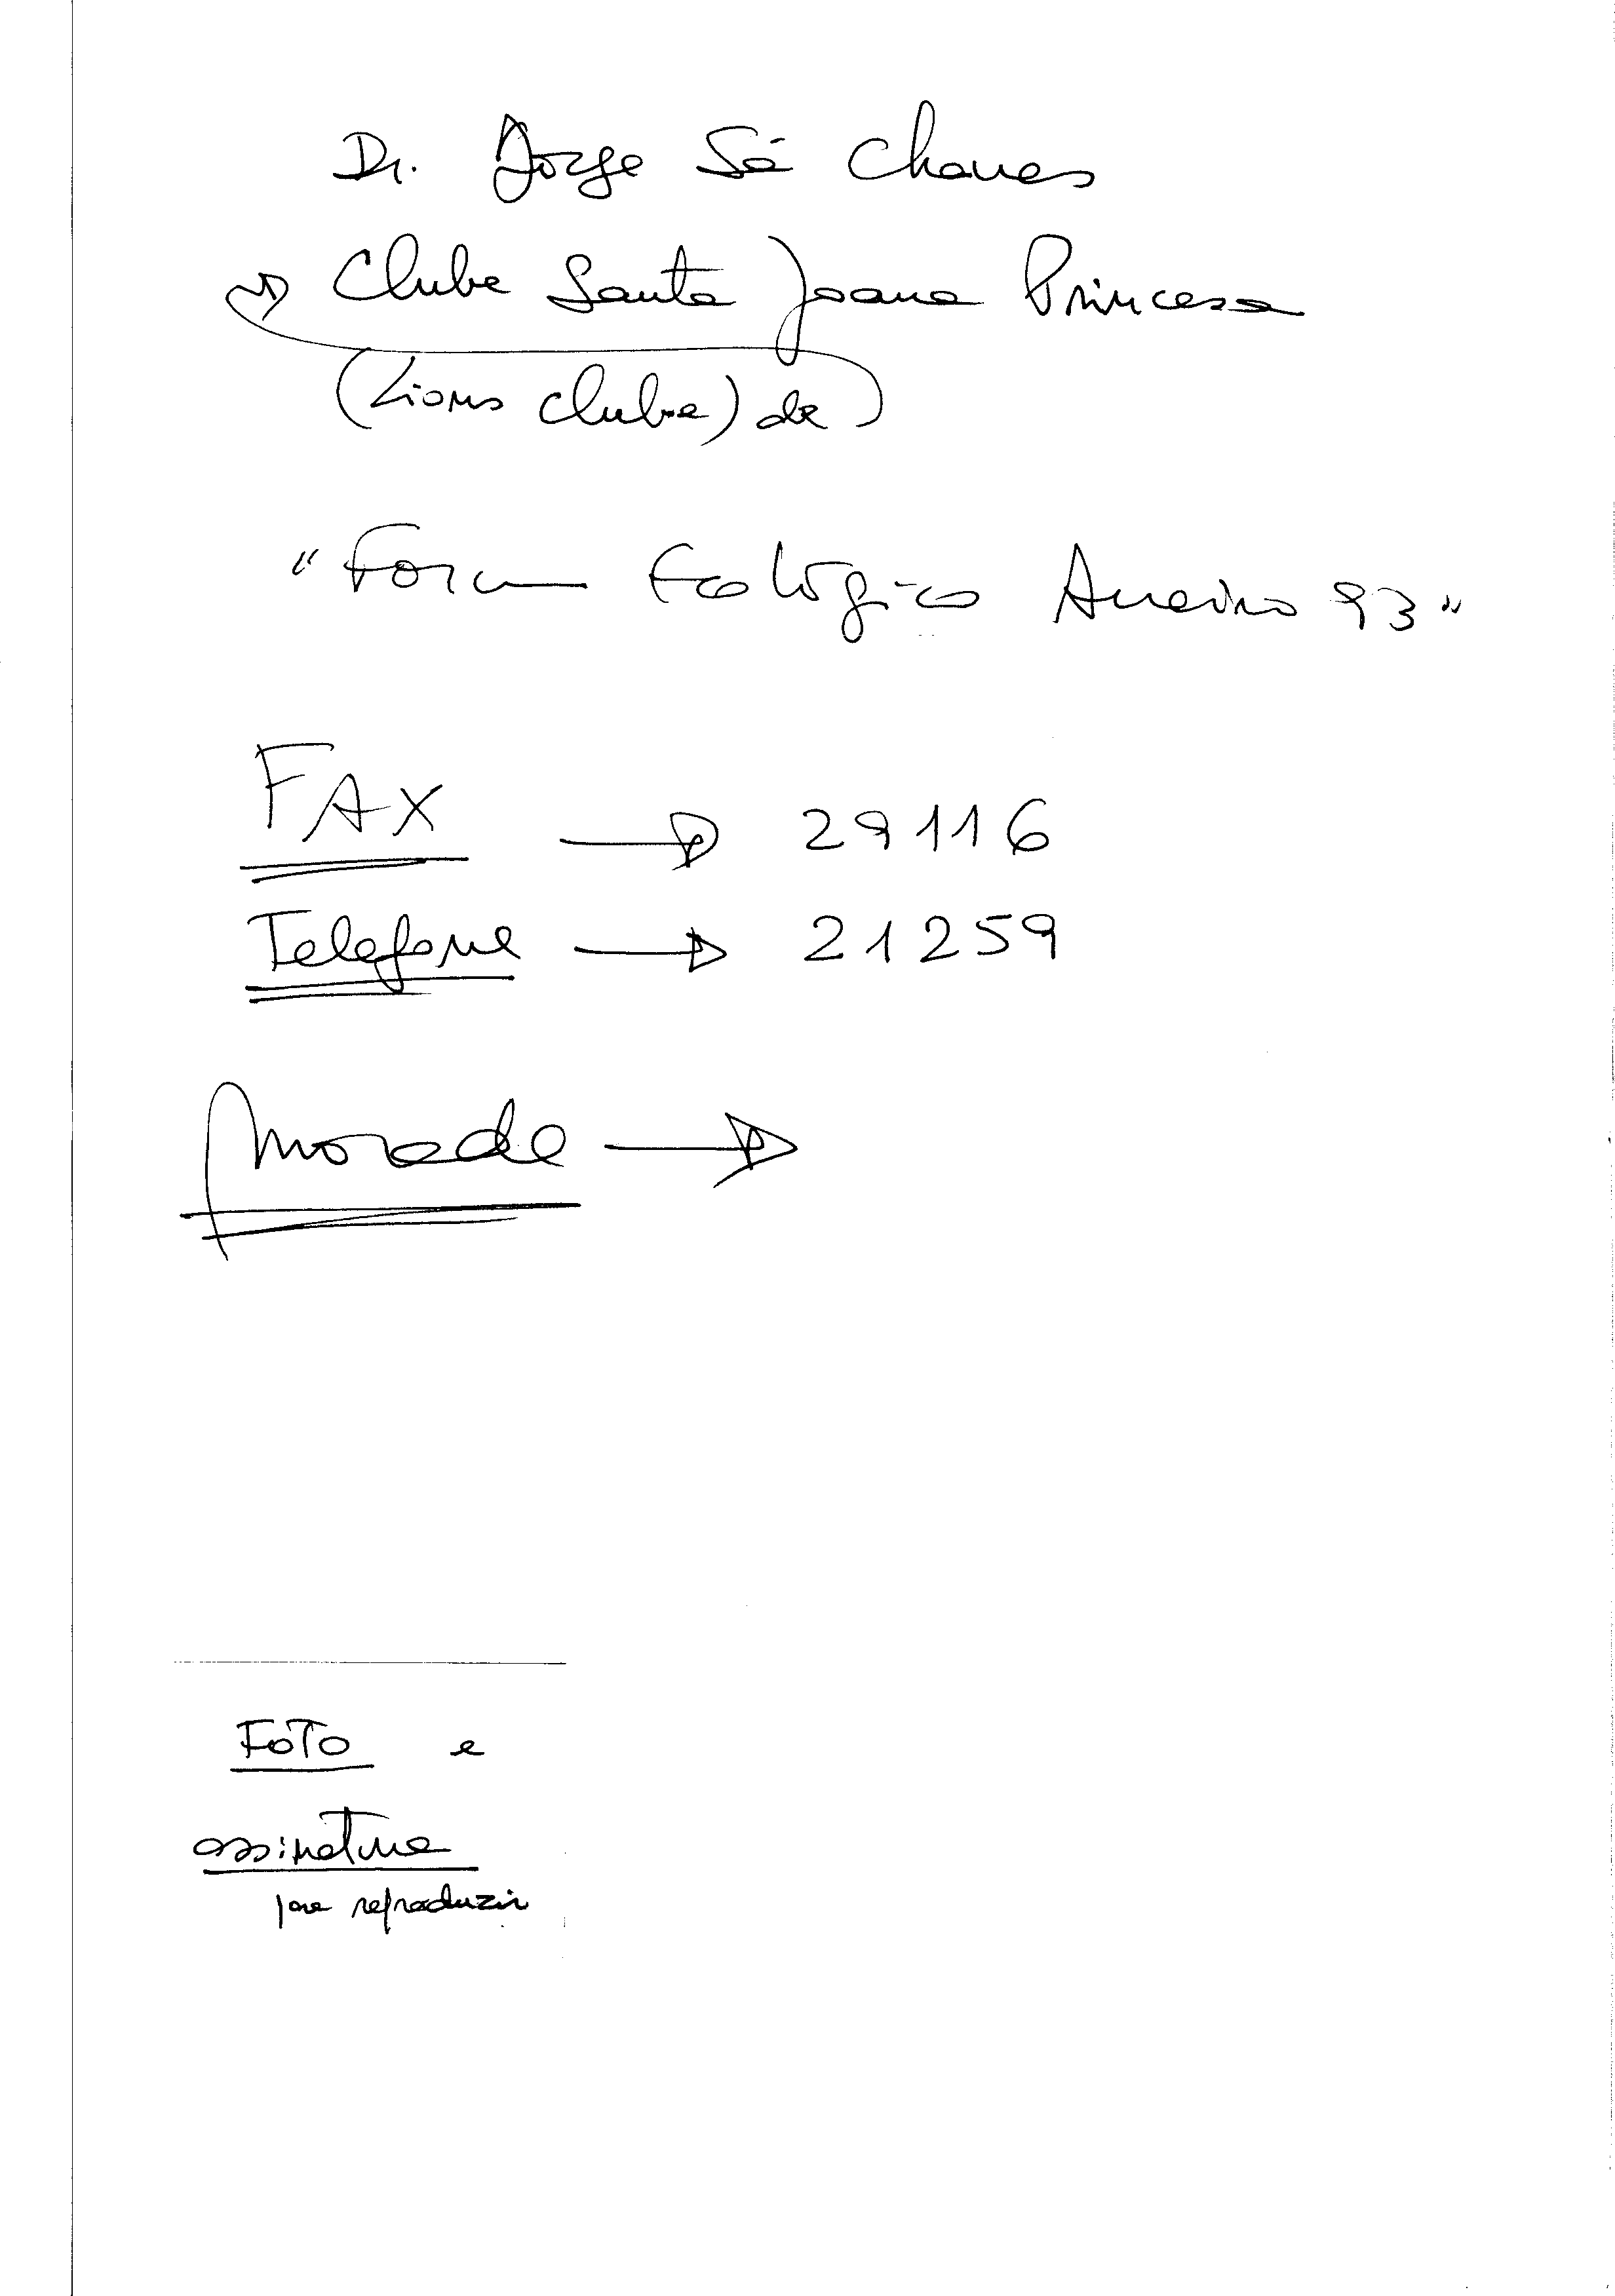 Dr. Jorge Sá Chaves
Clube Santa Joana Princesa
(Lions clube) de
"Forum Ecológico Aveiro 93"
FAX → 29116
Telefone → 21259
Morada →
FOTO e
assinatura
para reproduzir